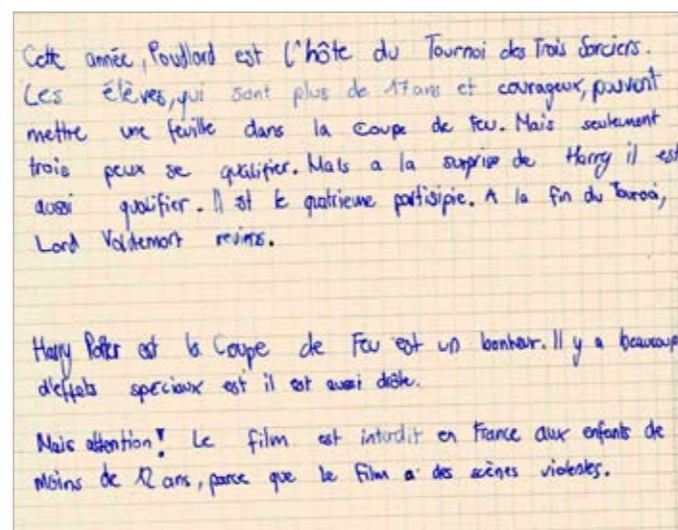 Cette année, Poudlard est l'hôte du Tournoi des Trois Sorciers.
Les élèves, qui sont plus de 17 ans et courageux, peuvent
mettre une feuille dans la Coupe de Feu. Mais seulement
trois peux se qualifier. Mais a la surprise de Harry il est
aussi qualifier. Il est le quatrieme partisipie. A la fin du Tournoi,
Lord Voldemort reviens.
Harry Potter est la Coupe de Feu est un bonheur. Il y a beaucoup
d'effets speciaux est il est aussi drôle.
Mais attention! Le film est interdit en France aux enfants de
moins de 12 ans, parce que le film a des scènes violentes.